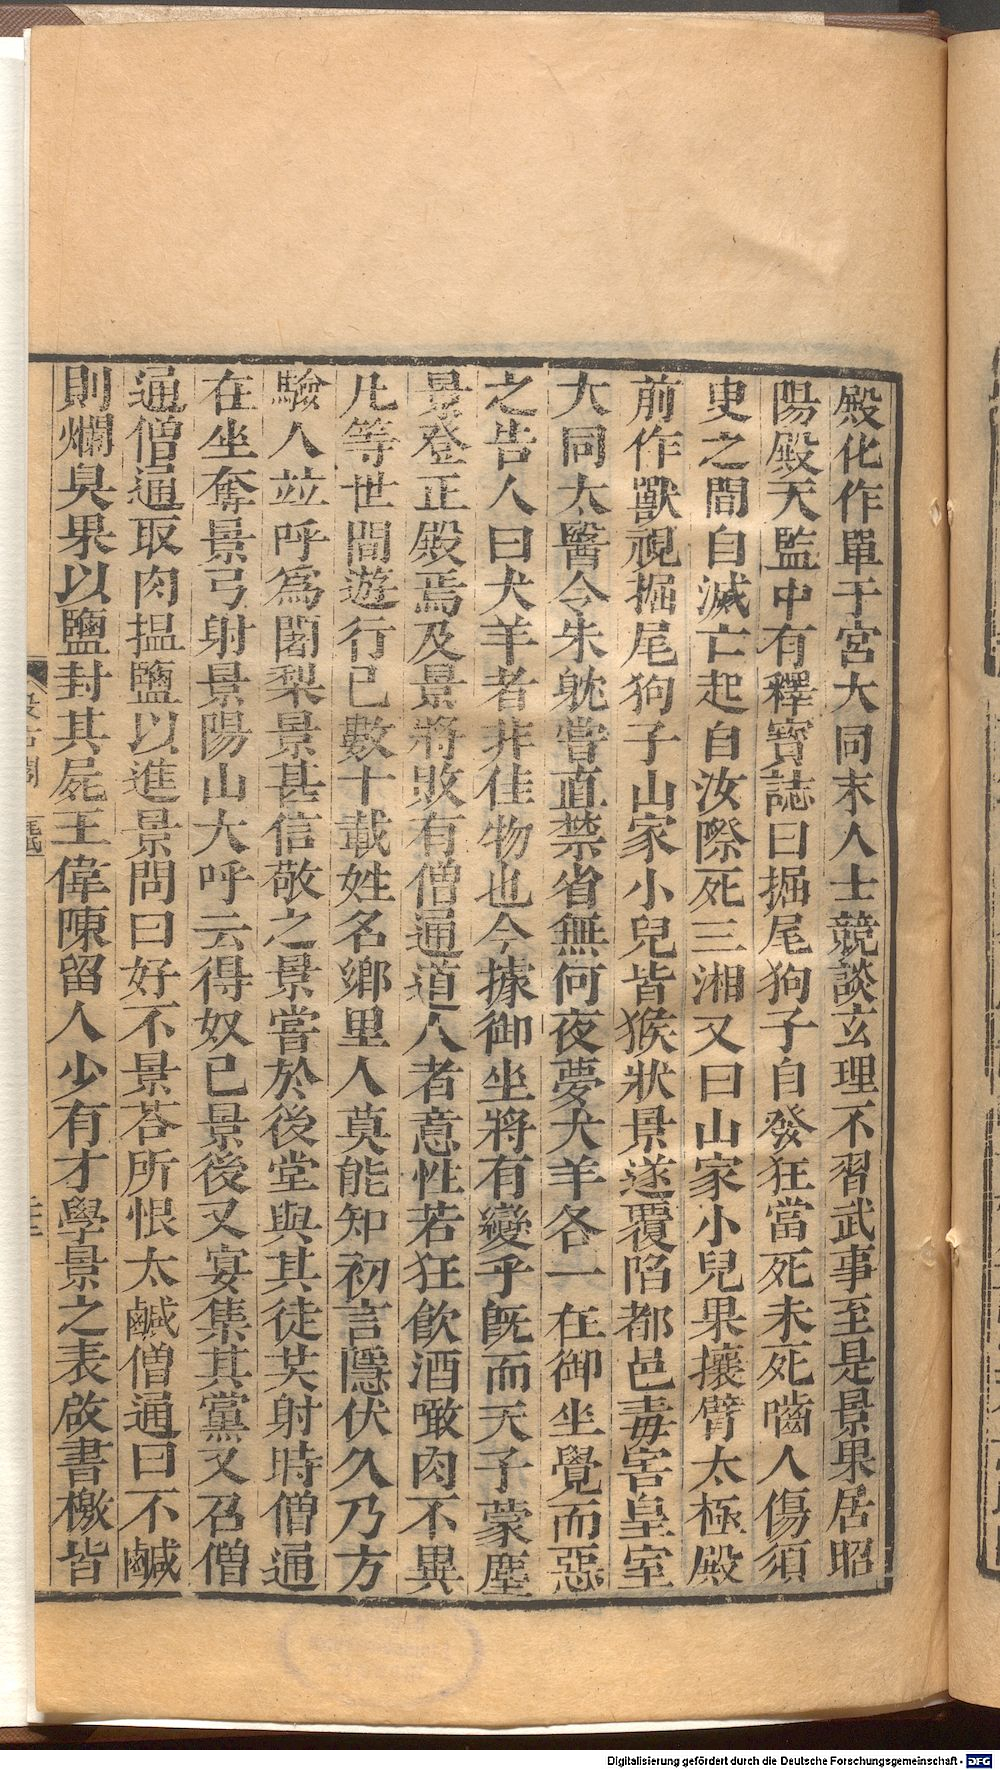 殿化作單于宮大同末人士競談玄理不習武事至是景果居昭
陽殿天監中有釋寶誌曰掘尾狗子自發狂當死未死嚙人傷須
吏之間自滅亡起自汝際死三湘又曰山家小兒果攘臂太極殿
前作獸視掘尾狗子山家小兒皆猴狀景遂覆陷都邑毒害皇室
大同太醫令朱躭嘗直禁省無何夜夢犬羊各一在御坐覺而惡
之告人曰犬羊者非佳物也今據御坐將有變乎旣而天子蒙塵
景登正殿焉及景將敗有僧通道人者意性若狂飲酒噉肉不異
凡等世間遊行已數十載姓名鄉里人莫能知初言隱伏久乃方
驗人竝呼爲闍梨景甚信敬之景嘗於後堂與其徒共射時僧通
在坐奪景弓射景陽山大呼云得奴已景後又宴集其黨又召僧
通僧通取肉揾鹽以進景問曰好不景荅所恨太鹹僧通曰不鹹
則爛臭果以鹽封其屍王偉陳留人少有才學景之表啟書檄皆
Digitalisierung gefördert durch die Deutsche Forschungsgemeinschaft - DFG